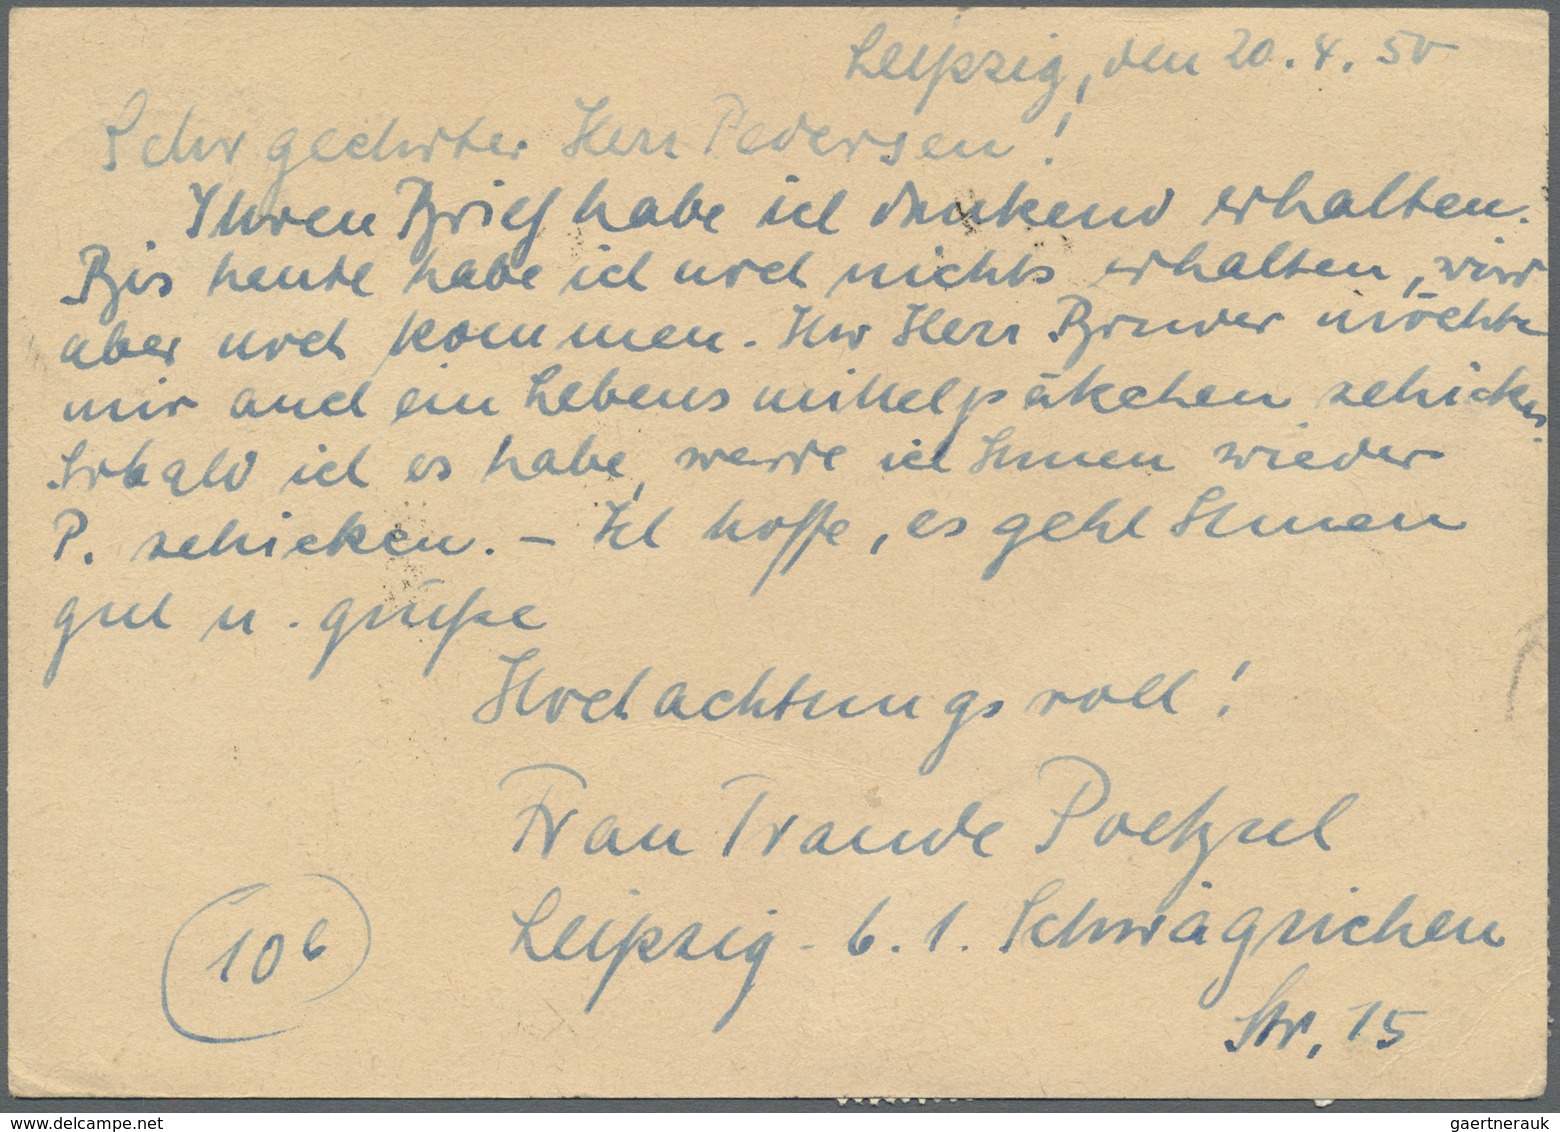 Leipzig, den 20. 4. 50
Sehr geehrter Herr Pedersen!
Ihren Brief habe ich dankend erhalten.
Bis heute habe ich noch nichts erhalten, wird
aber noch kommen. Ihr Herr Bruder möchte
mir auch ein Lebensmittelpäkchen schicken.
Sobald ich es habe, werde ich Ihnen wieder
P. schicken. – Ich hoffe, es geht Ihnen
gut u. grüße
Hochachtungsvoll!
Frau Traude Poetzsel
Leipzig - C. 1. Schwägrichen
Str. 15
10b
gaertnerauk @ delcampe.net